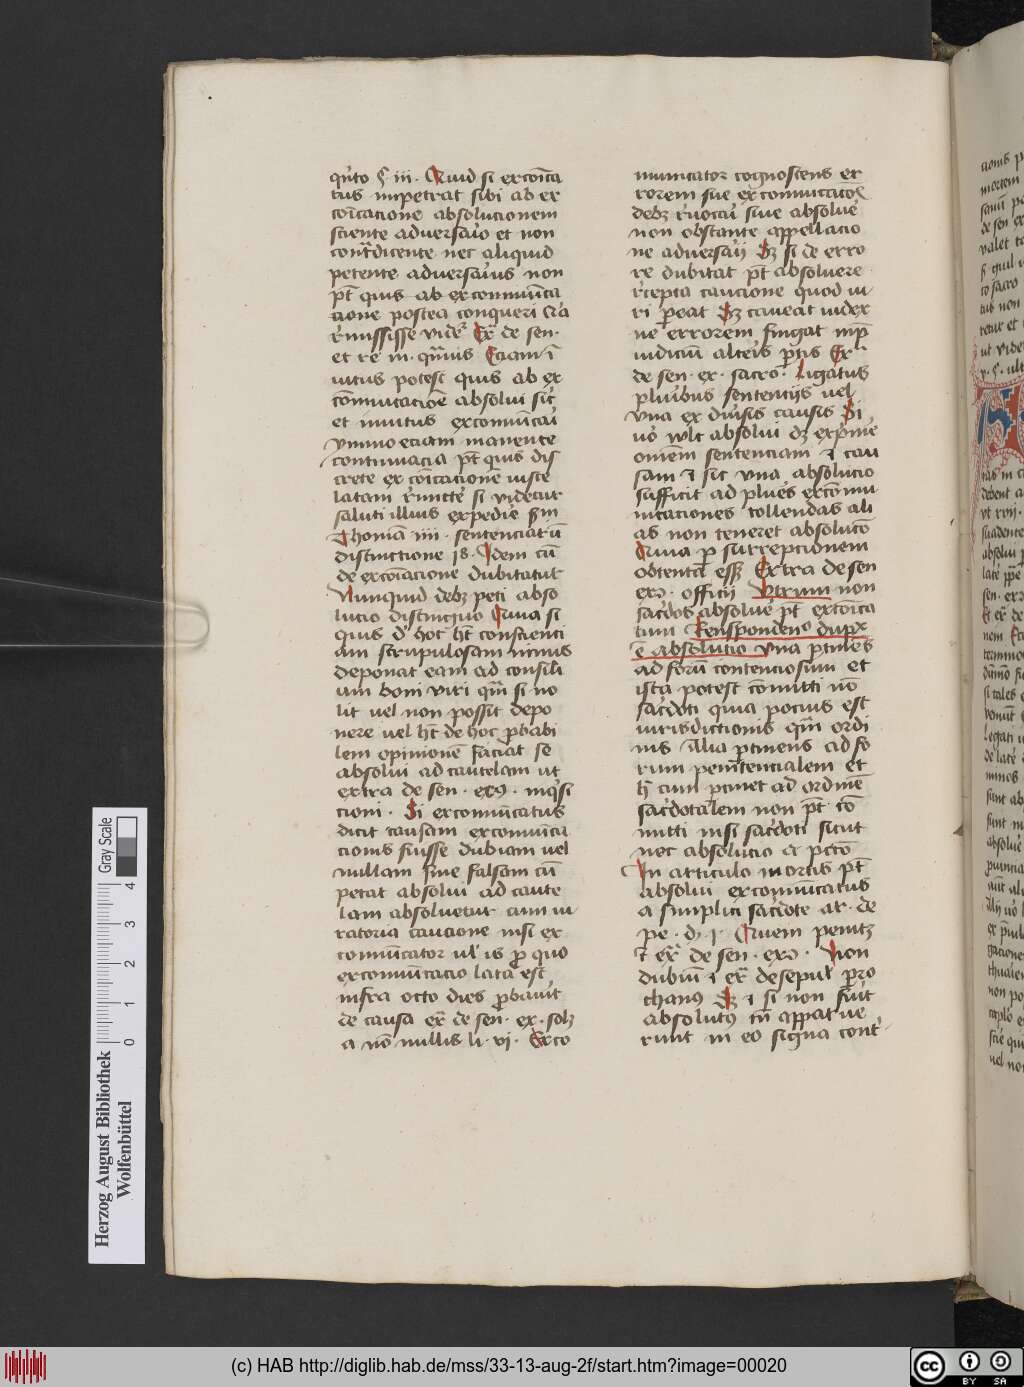 qn̄to ꝯ iii · Quid si excōīca
tus impetrat sibi ab ex
cōīcacione absolucionem
sciente adversa'o et non
cont̄dicente nec aliquid
petente adversarius non
pt̄ quis ab excommūīca
cione postea conqueri
r'mississe vide' Ex̄ de sen·
et re iu · qm̄uis Eciam ī
uitus potest quis ab ex
cōmunicacōe absolui sic̄
et inuitus excommūcai
ymmo eciam manente
continuacia pt̄ quis dis
crete ex cōīcacione iuste
latam r'mitte' si videtur
saluti illius expedie' sm̄
Thomā iiii · sentenciarū
distinctione 18 · Idem cū
de excōīacione dubitatur
Nunquid debꝫ peti abso
lucio distinguo Quia si
quis d' hoc ht̄ conscienci
am scrupulosam nimis
deponat eam ad consili
um boni viri qm̄ si no
lit uel non possit depo
nere uel ht̄ de hoc probabi
lem opinionē faciat se
absolui ad cautelam ut
extra de sen · ex9 · inqͥsi
cioni · Si excommūīcatus
dicit causam excommūīca
cionis fuisse dubiam uel
nullam siue falsam cū
petat absolui ad caute
lam absoluetur cum iu
ratoria caucione nisi ex
commūīcator ul' is pro quo
excommūīcacio lata est
infra octo dies probaūit
de causa ex̄ de sen · ex · solꝫ
a nō nullis li · vi · Exco
municator cognoscens er
rorem sue excommūīcacōs
debꝫ r'uocar̄ siue absolue'
non obstante appellacio
ne adversarij Sꝫ si de erro
re dubitat pt̄ absoluere
r'cepta caucione quod iu
ri pareat Sꝫ caueat iudex
ne errorem fingat inp̄
iudiciū alteris ꝑtis Ex̄
de sen · ex · sacro · Ligatus
pluribus sentencijs vel
vna ex diuisis causis Si
uo' vult absolui dꝫ exprime'
omēm sentenciam ⁊ cau
sam ⁊ sic vna absolucio
sufficit ad plures excōmu
nicaciones tollendas ali
as non teneret absolucō
Quia p surrepcionem
obtenta essꝫ Extra de sen
exɔ · officij Vtrum non
sac̄dos absolue' pt̄ excōīca
tum Respondeno duplex
ē absolucio vna ꝑtines
ad forū contenciosum et
ista potest cōmitti nō
sac̄doti quia pocius est
iurisdictionis qm̄ ordi
nis Alia ꝑtinens ad fo
rum penītencialem et
h' cum ꝑtinet ad ordinē
sac̄dotalem non pt̄ cō
mitti nisi sac̄doti sicut
nec absolucio a pctō
In articulo mortis pt̄
absolui excommūīcatus
a simplici sac̄dote ar · de
pe · d · i · Quem penitꝫ
⁊ ex̄ de sen · exɔ · Non
dubiū ⁊ ex̄ de sepul' pro
chian9 Sꝫ ⁊ si non fūit
absolut9 tn̄ apparue
runt in eo signa cont'
Herzog August Bibliothek
Wolfenbüttel
Gray Scale
0 1 2 3 4
(c) HAB http://diglib.hab.de/mss/33-13-aug-2f/start.htm?image=00020
cc BY SA